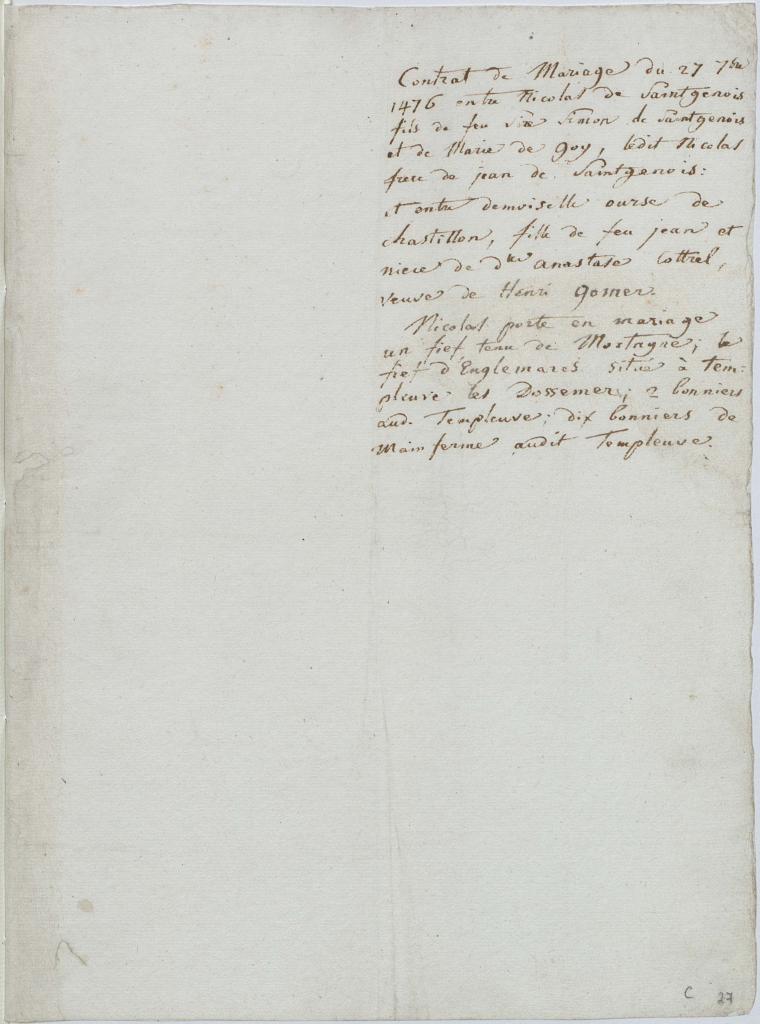 Contrat de Mariage du 27 7bre
1476 entre Nicolas de Saintgenois
fils de feu sire Simon de Saintgenois
et de Marie de Goy, ledit Nicolas
frere de jean de Saintgenois:
et entre demoiselle ourse de
chastillon, fille de feu jean et
niece de dlle anastase Cottrel,
veuve de Henri Gomer.
Nicolas porte en mariage
un fief tenu de Mostagne; le
fief d'Englemarés situé à Tem=
pleuve les Dossemer; 2 bonniers
aud. Templeuve; dix bonniers de
Main ferme audit Templeuve.
C 27